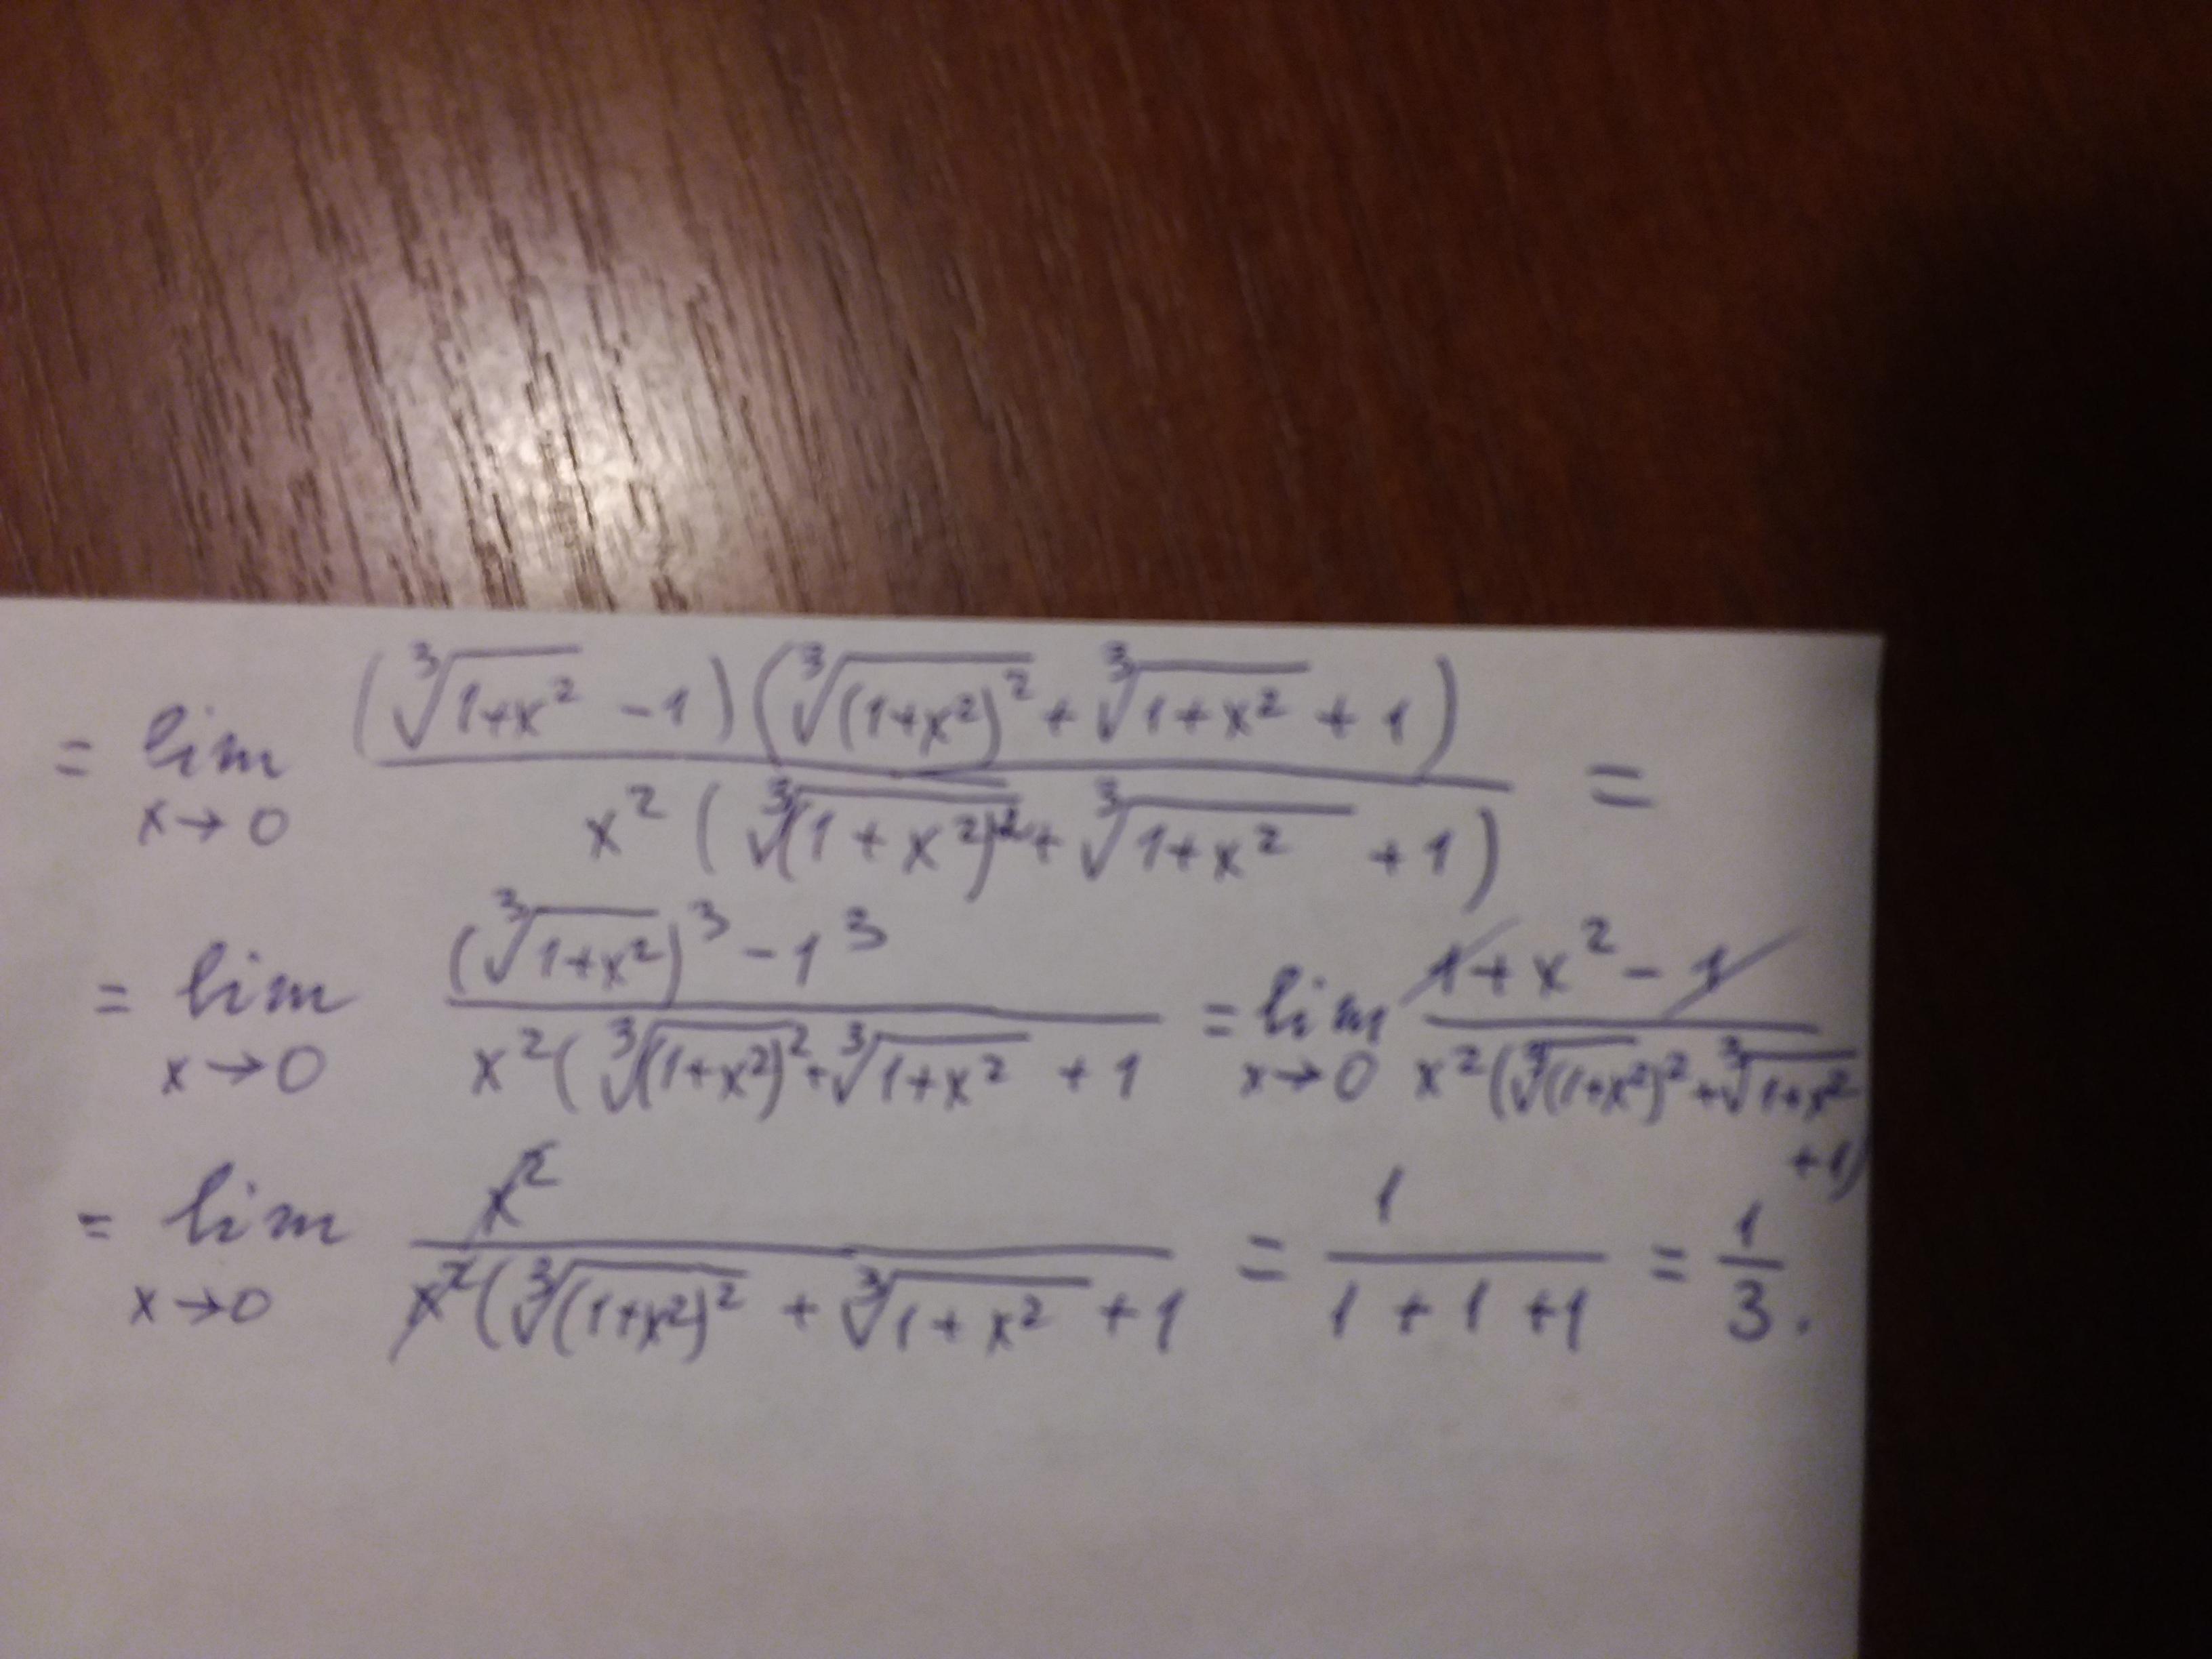 = lim x→0 (∛(1+x²) - 1)(∛((1+x²)²) + ∛(1+x²) + 1) / x²(∛((1+x²)²) + ∛(1+x²) + 1) =
= lim x→0 (∛(1+x²))³ - 1³ / x²(∛((1+x²)²) + ∛(1+x²) + 1 = lim x→0 1+x² - 1 / x²(∛((1+x²)²) + ∛(1+x²) +1)
= lim x→0 x² / x²(∛((1+x²)²) + ∛(1+x²) + 1 = 1 / 1 + 1 + 1 = 1/3.